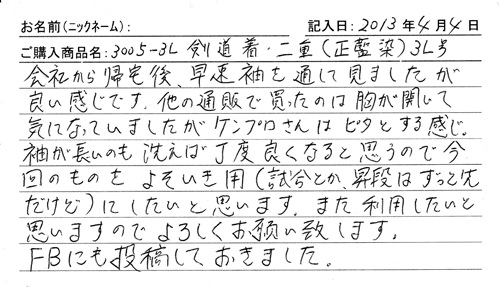 お名前(ニックネーム): 記入日:2013年4月4日
ご購入商品名:3005-3L 剣道着・二重(正藍染)3L号
会社から帰宅後、早速袖を通して見ましたが
良い感じです。他の通販で買ったのは胸が開いて
気になっていましたがケンプロさんはピタとする感じ。
袖が長いのも洗えば丁度良くなると思うので今
回のものをよそいき用(試合とか、昇段はずっと先
だけど)にしたいと思います。また利用したいと
思いますのでよろしくお願い致します。
FBにも投稿しておきました。